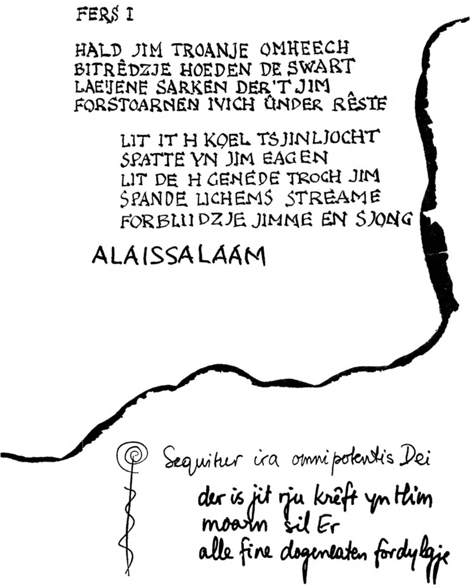 FERS I
HALD JIM TROANJE OMHEECH
BITRÊDZJE HOEDEN DE SWART
LAEIJENE SARKEN DER'T JIM
FORSTOARNEN IVICH ÛNDER RÊSTE
LIT IT H KOEL TSJINLJOCHT
SPATTE YN JIM EAGEN
LIT DE H GENEDE TROCH JIM
SPANDE LICHEMS STREAME
FORBLIIDZJE JIMME EN SJONG
ALAISSALAAM
Sequitur ira omnipotentis Dei
der is jit rju krêft yn Him
moarn sil Er
alle fine dogeneaten fordylgje